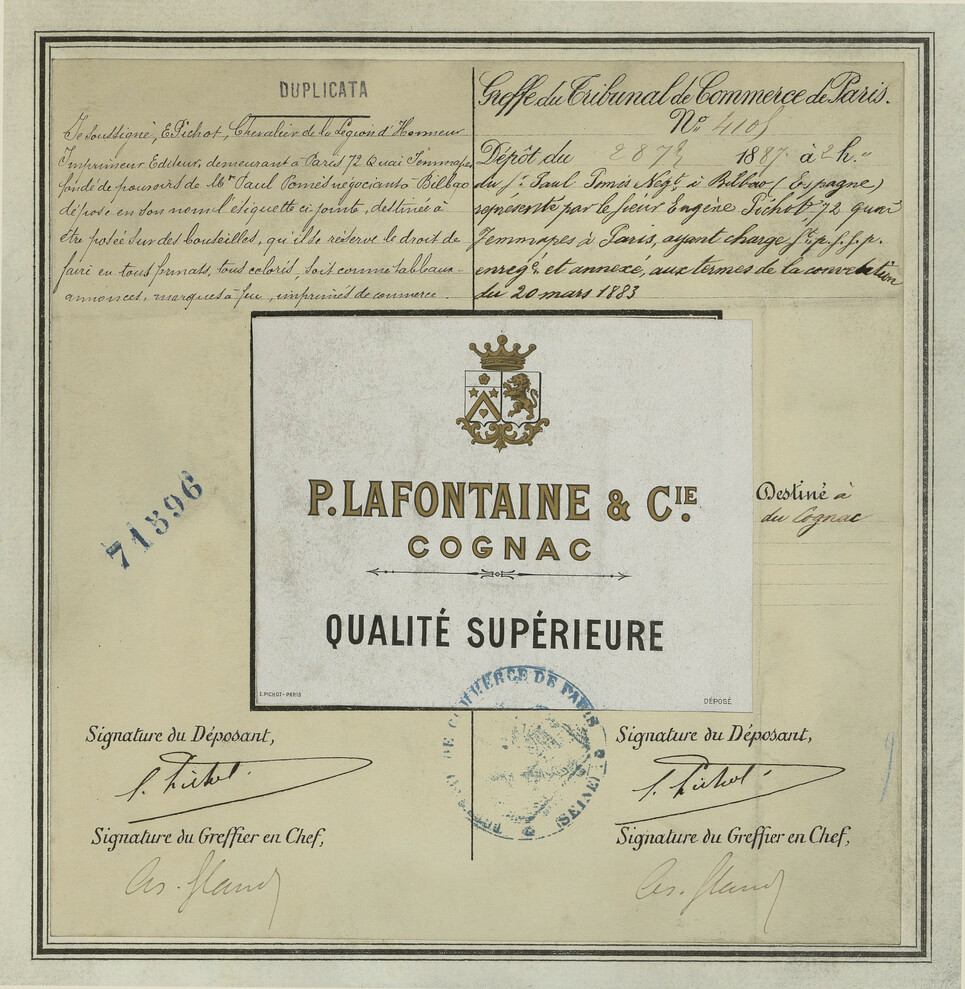 DUPLICATA
Je soussigné, E. Pichot, Chevalier de la Légion d'Honneur
Imprimeur Editeur, demeurant à Paris 72 Quai Jemmapes
fondé de pouvoirs de Mr Paul Pomès négociant à Bilbao
dépose en son nom l'étiquette ci-jointe, destinée à
être posée sur des bouteilles, qu'il se réserve le droit de
faire en tous formats, tous coloris, soit comme tableaux-
annonces, marques à feu, imprimés de commerce.
Greffe du Tribunal de Commerce de Paris.
No 4108
Dépôt du 28 1887 à 2 h.
du Sr Paul Pomès Negt à Bilbao (Espagne)
représenté par le sieur Eugène Pichot, 72 quai
Jemmapes à Paris, ayant charge
enregé et annexé, aux termes de la convention
du 20 mars 1883
71896
P. LAFONTAINE & CIE.
COGNAC
QUALITÉ SUPÉRIEURE
E. PICHOT-PARIS
DÉPOSÉ
Destiné à
du Cognac
DE COMMERCE DE PARIS
(SEINE)
Signature du Déposant,
E. Pichot
Signature du Greffier en Chef,
Signature du Déposant,
E. Pichot
Signature du Greffier en Chef,